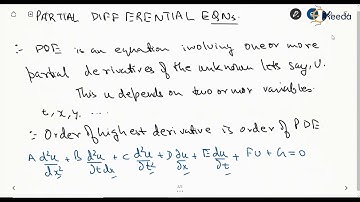 PARTIAL DIFFERENTIAL EQNs.
Keeda
∵ PDE is an equation involving one or more
partial derivatives of the unknown lets say, U.
This u depends on two or mor variables
t, x, y. ...
∵ Order of highest derivative is order of PDE
A d²u/dx² + B d²u/dtdx + C d²u/dt² + D du/dx + E du/dt + FU + G = 0